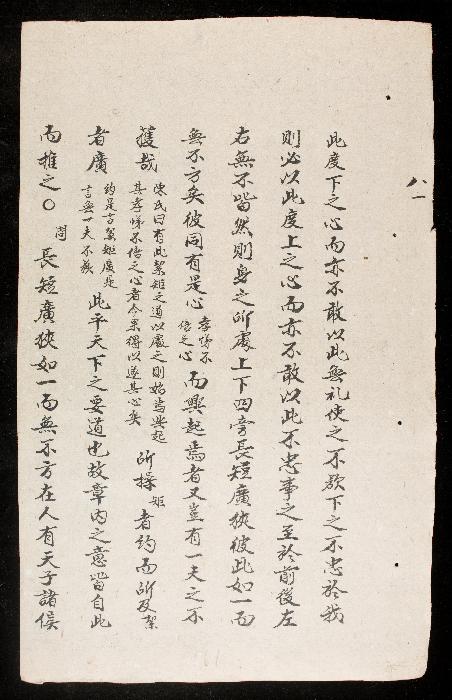 八一
此度下之心而亦不敢以此無礼使之不欲下之不忠於我
則必以此度上之心而亦不敢以此不忠事之至於前後左
右無不皆然則身之所處上下四旁長短廣狹彼此如一而
無不方矣彼同有是心孝悌不倍之心而興起焉者又豈有一夫之不
獲哉陳氏曰有此絜矩之道以處之則始焉興起其孝悌不倍之心者今果得以遂其心矣所操矩者約而所及絜
者廣約是言絜矩廣是言無一夫不獲此平天下之要道也故章內之意皆自此
而推之〇問長短廣狹如一而無不方在人有天子諸侯